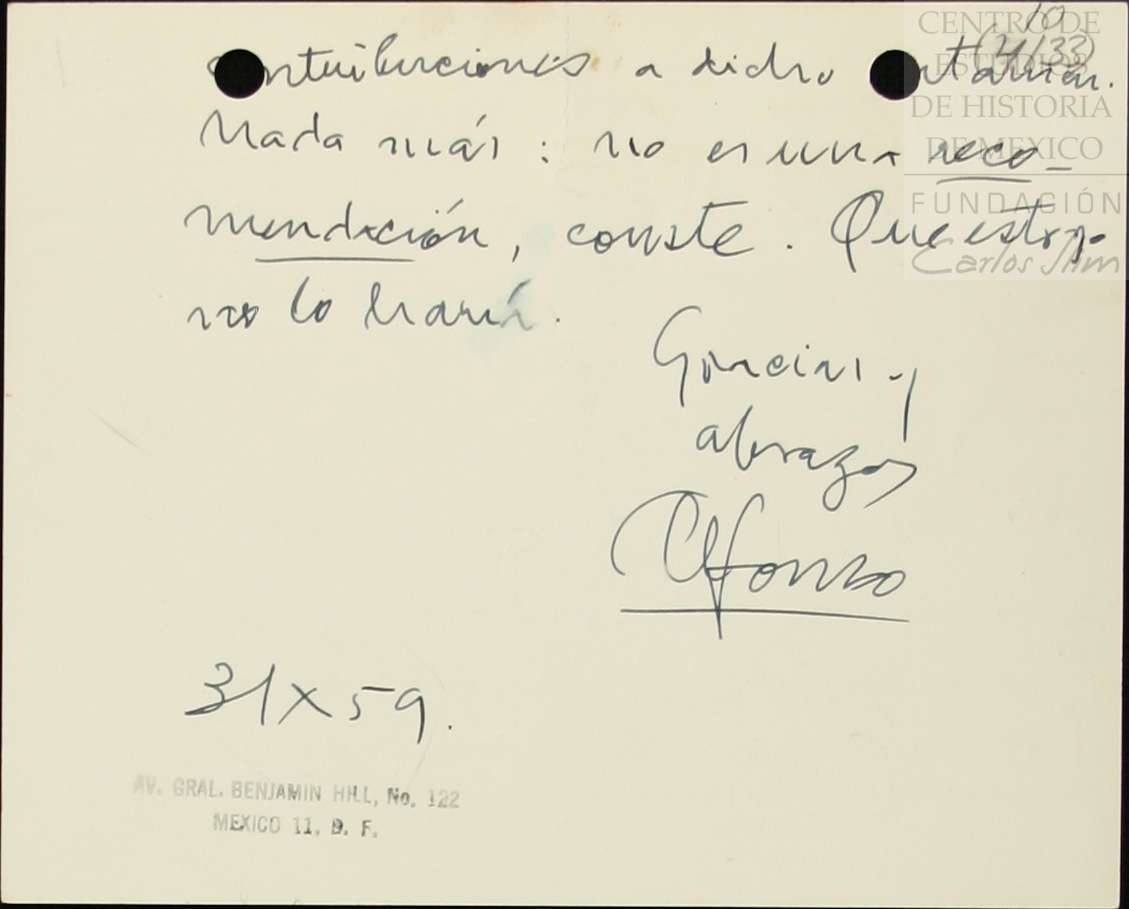 10
(4/33)
CENTRO DE
ESTUDIOS
DE HISTORIA
DE MEXICO
FUNDACIÓN
Carlos Slim
contribuciones a dicho
Nada más: no es una reco-
mendación, conste. Que esto yo
no lo haría.
Gracias y
abrazos
Alfonso
31 X 59.
AV. GRAL. BENJAMIN HILL, No. 122
MEXICO 11, D. F.